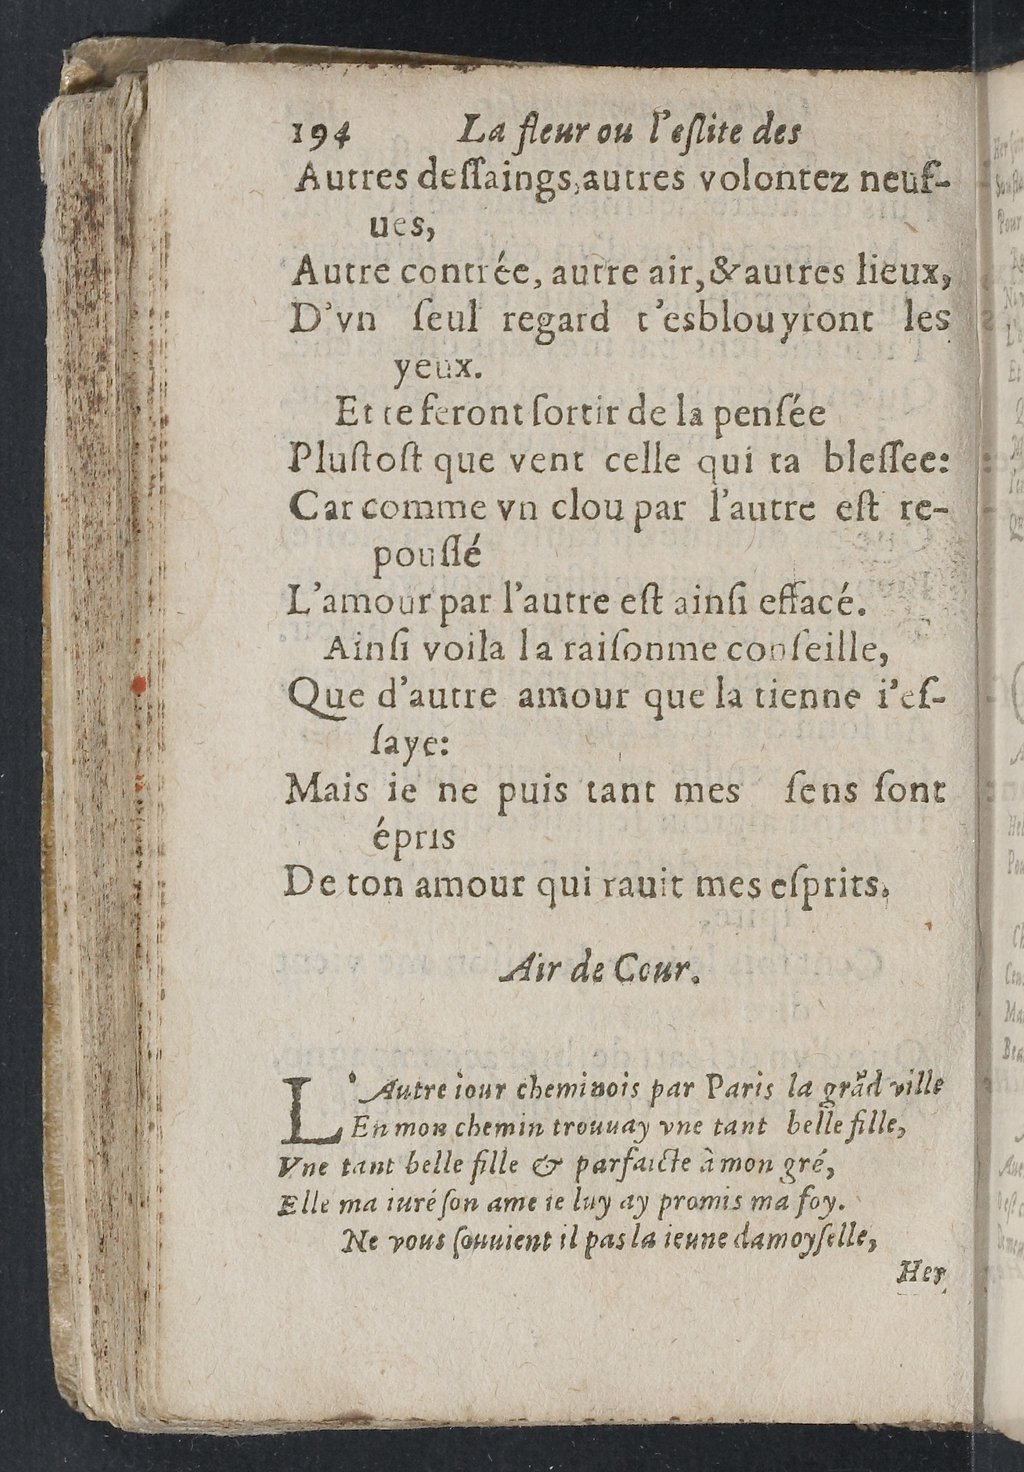 194 La fleur ou l'eſlite des
Autres deſſaings, autres volontez neuf-
ues,
Autre contrée, autre air, & autres lieux,
D'vn ſeul regard t'esblouyront les
yeux.
Et te feront ſortir de la penſée
Pluſtoſt que vent celle qui ta bleſſee:
Car comme vn clou par l'autre eſt re-
pouſſé
L'amour par l'autre eſt ainſi effacé.
Ainſi voila la raiſon me conſeille,
Que d'autre amour que la tienne i'eſ-
ſaye:
Mais ie ne puis tant mes ſens ſont
épris
De ton amour qui rauit mes eſprits,
Air de Cour.
L'Autre iour cheminois par Paris la grãd ville
En mon chemin trouuay vne tant belle fille,
Vne tant belle fille & parfaicte à mon gré,
Elle ma iuré ſon ame ie luy ay promis ma foy.
Ne vous ſouuient il pas la ieune damoyſelle,
Her